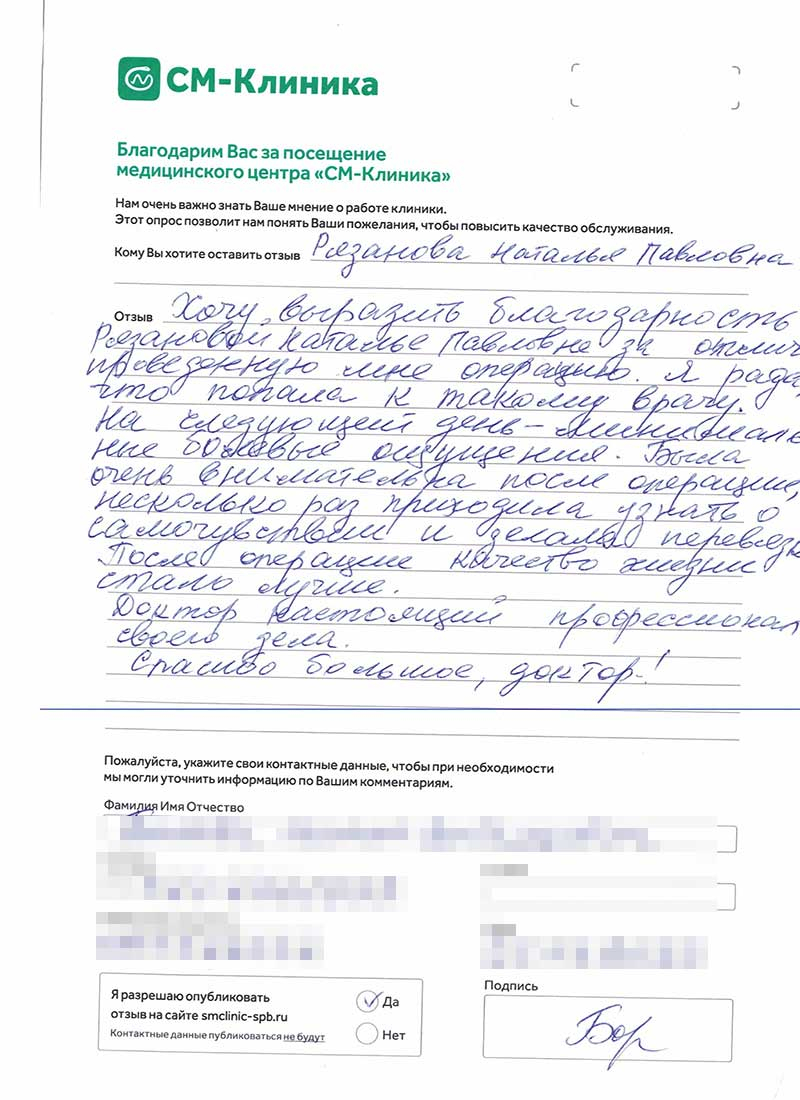 СМ-Клиника
Благодарим Вас за посещение
медицинского центра «СМ-Клиника»
Нам очень важно знать Ваше мнение о работе клиники.
Этот опрос позволит нам понять Ваши пожелания, чтобы повысить качество обслуживания.
Кому Вы хотите оставить отзыв Рязанова Наталья Павловна
Отзыв Хочу выразить благодарность
Рязановой Наталье Павловне за отлич
проведенную мне операцию. Я рада,
что попала к такому врачу.
На следующий день - минималь
ные болевые ощущения. Была
очень внимательна после операции,
несколько раз приходила узнать о
самочувствии и делала перевязк
После операции качество жизни
стало лучше.
Доктор настоящий профессионал
своего дела.
Спасибо большое, доктор!
Пожалуйста, укажите свои контактные данные, чтобы при необходимости
мы могли уточнить информацию по Вашим комментариям.
Фамилия Имя Отчество
Я разрешаю опубликовать
отзыв на сайте smclinic-spb.ru
Контактные данные публиковаться не будут
Да
Нет
Подпись
Бор